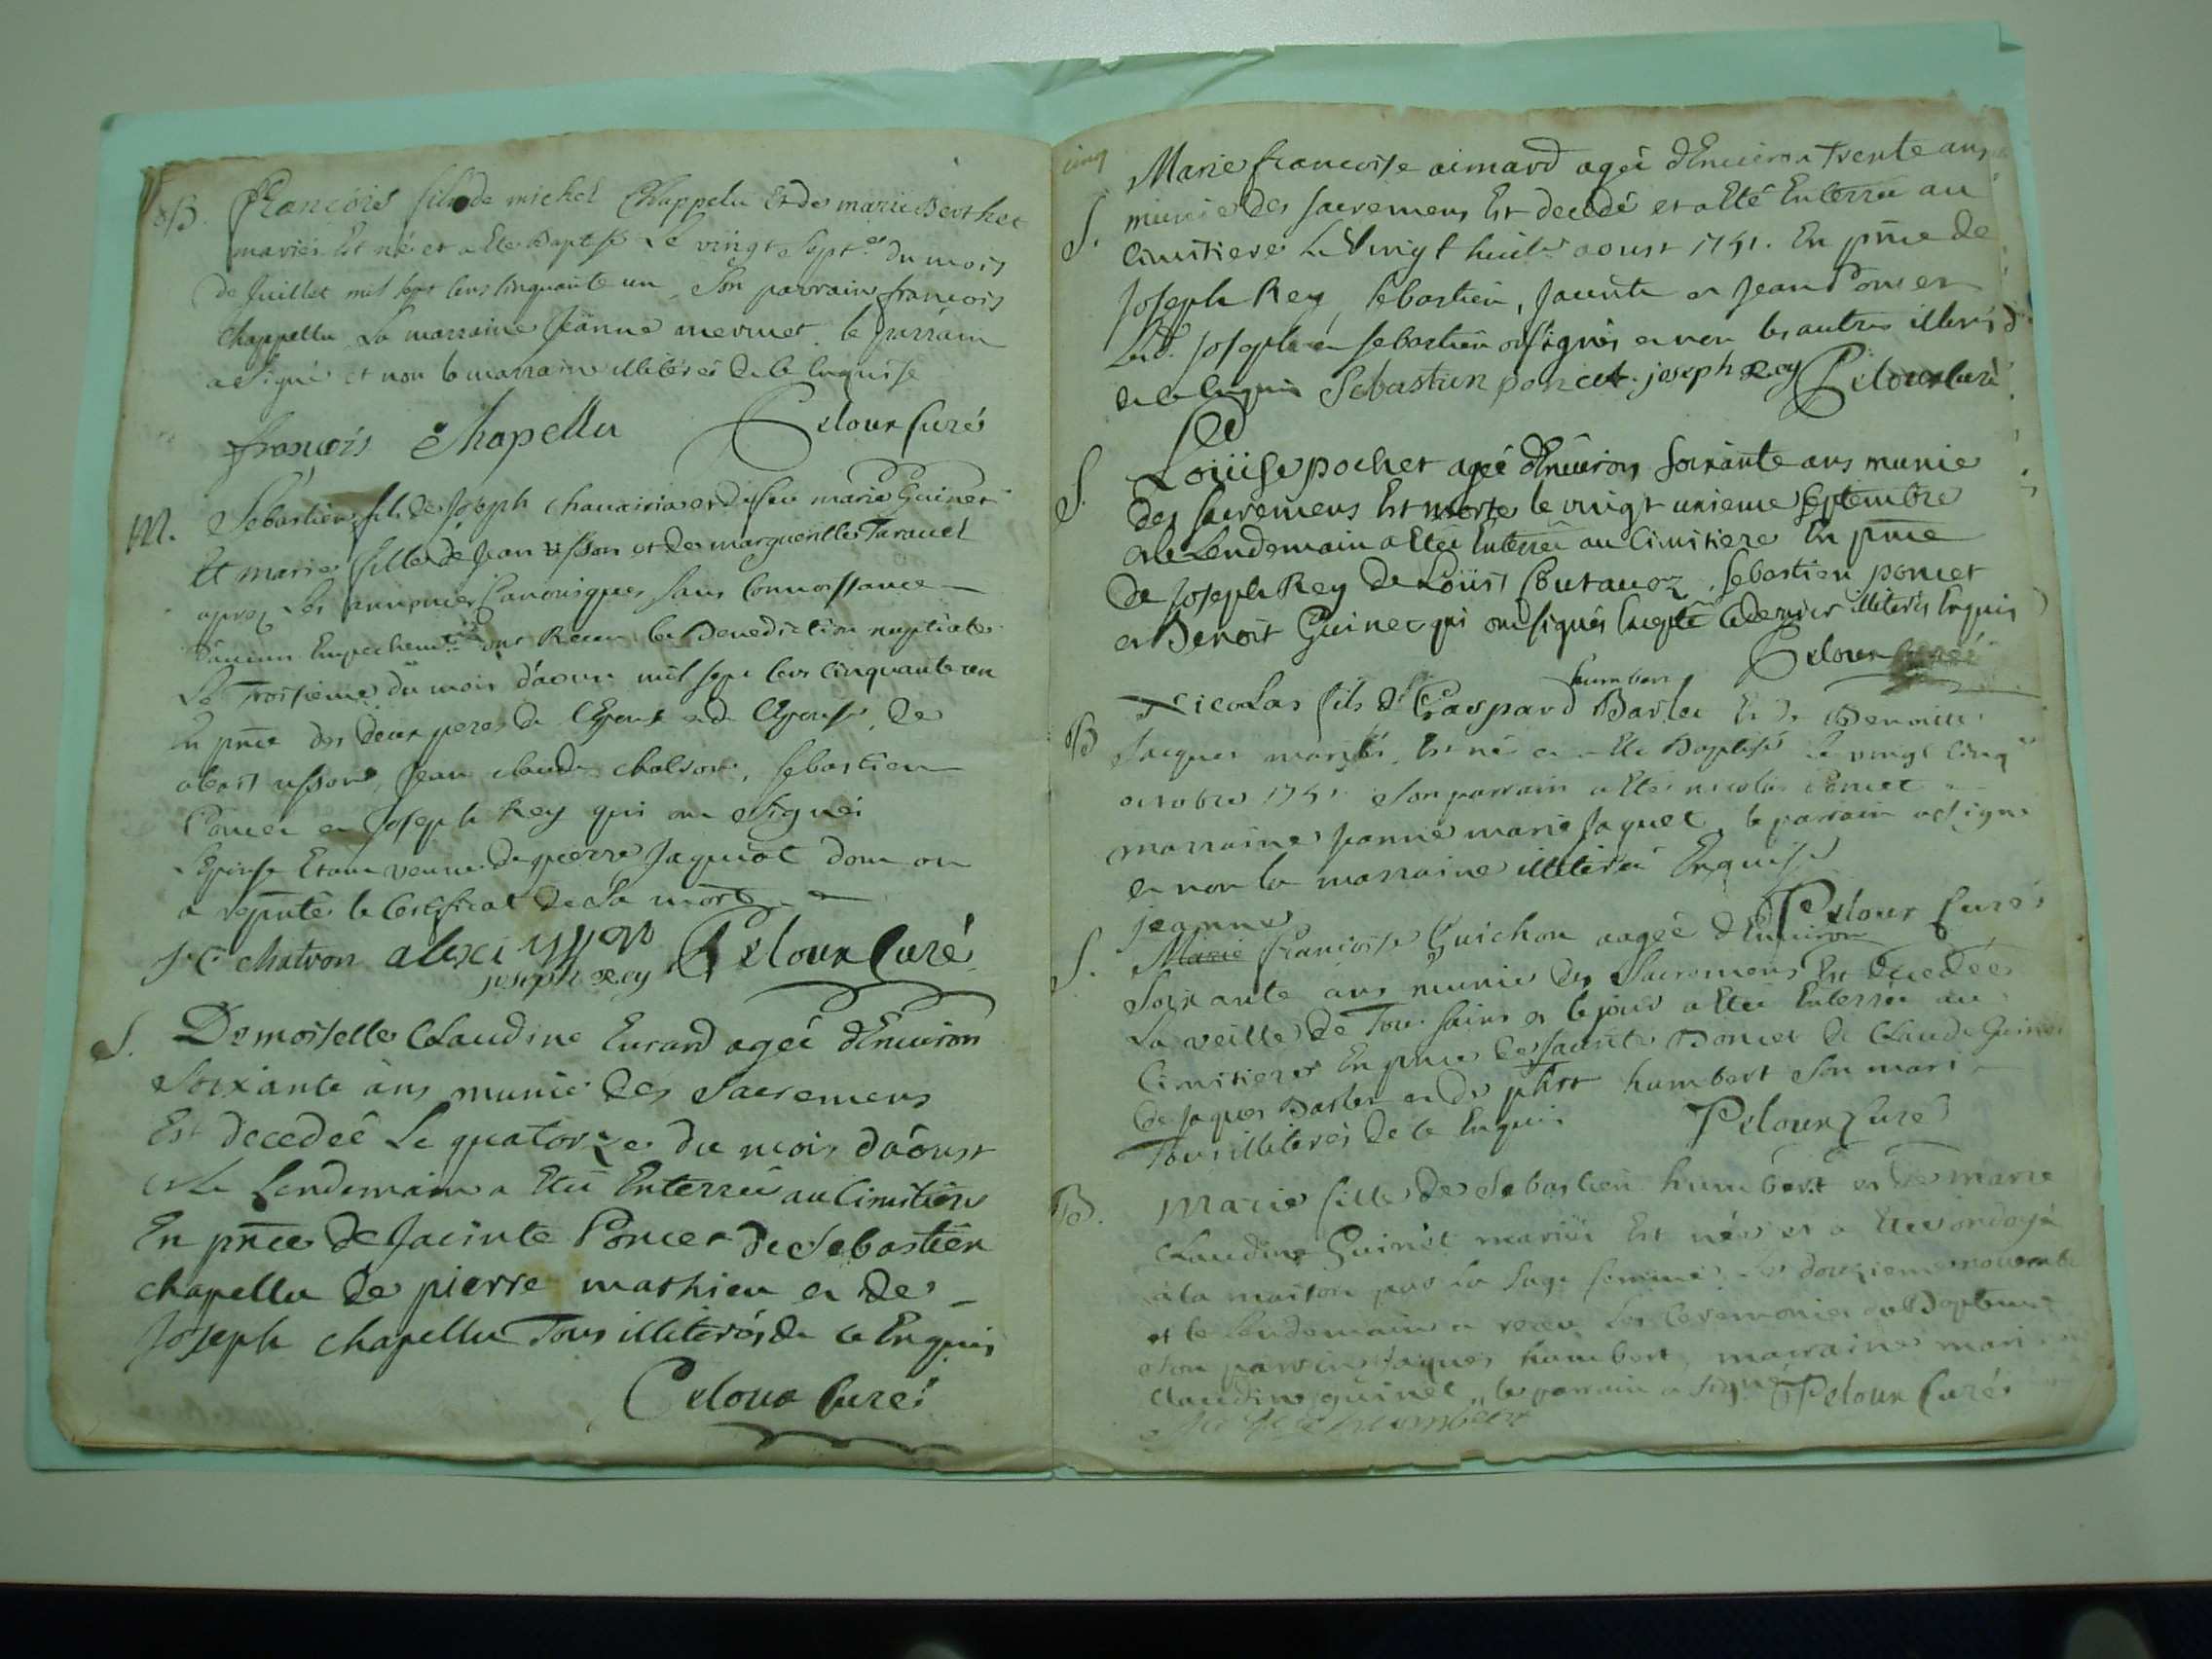 B. François fils de michel Chappelu Et de marie Berthet
mariés Est né et a Ete Baptisé Le vingt Sept.e du mois
de Juillet mil sept Cens Cinquante un Son parrain françois
Chappellu La marraine Jeanne mermet le parrain
a Signé et non la marraine illiterée de ce Enquise
françois Chapellu Pelour Curé
M. Sebastien fils de Joseph et de feu marie Guinet
Et marie fille de Jean usson et de margueritte Taravel
aprez Les annonces Canoniques sans Connoissance
d'aucun Empechemt. ont Recu la Benediction nuptiale
Le Troisieme du mois d'aoust mil sept Cens Cinquante un
En pnce des deux peres de l'Epoux et de l'Epouse, de
alexis usson, Jean claude chatron, Sebastien
Poncet et Joseph Rey qui ont Signé
l'Epouse Etant veuve de pierre Jaquot dont on
a le Certificat de sa mort
J C chatron alexi usson joseph Rey Pelour Curé
S. Demoiselle Claudine Eurard agée d'Environ
Soixante ans munie des Sacremens
Est decedeé Le quatorze du mois d'aoust
et Le Lendemain a Eté Enterreé au Cimitiere
En pnce de Jacinte Poncet de Sebastien
chapellu de pierre mathieu et de
Joseph chapellu Tous illiterés de ce Enquis
Pelour Curé
cinq
S. Marie francoise aimard agée d'Environ Trente ans
munie des sacremens Est decedé et a Eté Enterreé au
Cimitiere Le Vingt huit aoust 1751. En pnce de
Joseph Rey, Sebastien, Jacinte et Jean Poncet
Joseph et Sebastien ont signés et non les autres illiterés
de ce Enquis Sebastien poncet. joseph Rey Pelour Curé
S. Loüise pochet agée d'Environ Soixante ans munie
des sacremens Est morte le vingt unieme Septembre
et le Lendemain a Eté Enterreé au Cimitiere En pnce
de Joseph Rey de Loüis Coutavoz, Sebastien poncet
et Benoit Guinet qui ont signés Excepté ce dernier illiterés Enquis
Pelour Curé
humbert
B Nicolas fils de Gaspard Barlet Et de
Jaques mariés, Est né et a Ete Baptisé Le vingt Cinq
octobre 1751 Son parrain a Eté nicolas Poncet
marraine Jeanne marie Jaquet, le parrain a signé
et non la marraine illiterée Enquise
Pelour Curé
jeanne
S. Marie Françoise Guichon aagée d'Environ
Soixante ans munie des Sacremens Est decedée
La veille de Tous saints et le jour a Eté Enterrée au
Cimitiere En pnce de Jacinte Poncet de Claude Guinet
de Jaques Barlet et de humbert Son mari
Tous illiterés de ce Enquis Pelour Curé
B. Marie fille de Sebastien humbert et de marie
Claudine Guinet mariés Est née et a Ete ondoyé
à la maison par La Sage femme Le douzieme novembre
et le Lendemain a receu Les Ceremonies du Bapteme
Son parrain Jaques humbert, marraine mari
Claudine guinet, le parrain a signé Pelour Curé
humbert